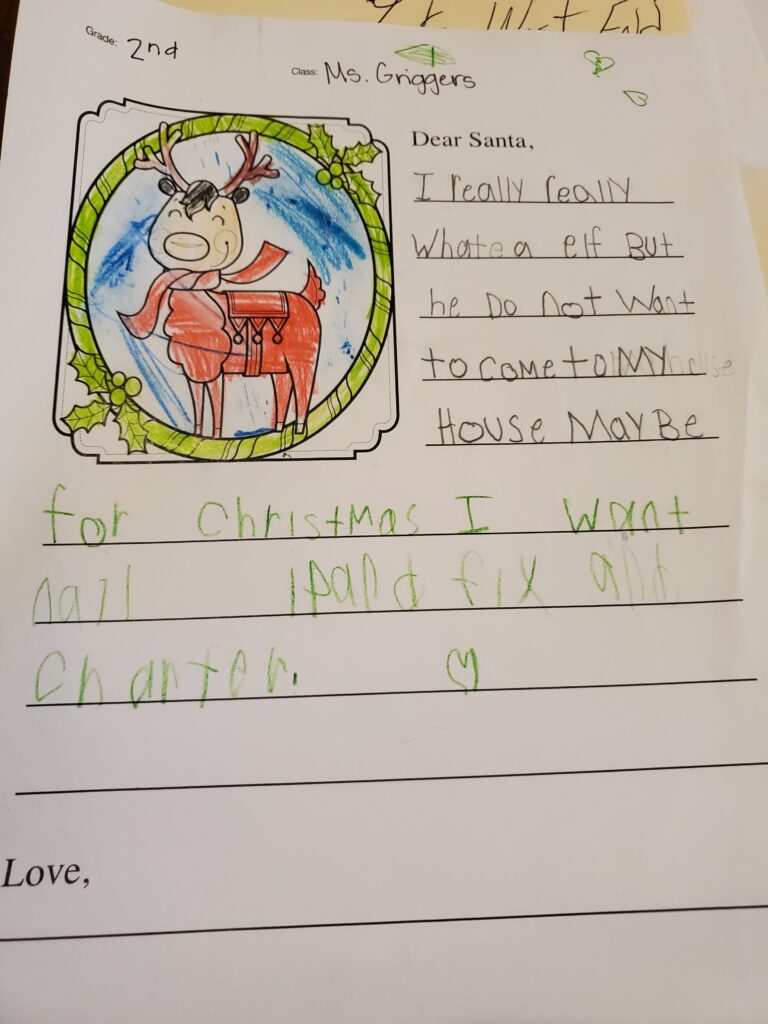 Grade: 2nd
Class: Ms. Griggers
Dear Santa,
I really really
Whate a elf But
he Do not Want
to come to MY
House MayBe
for Christmas I want
nail ipand fix and
Charter.
Love,